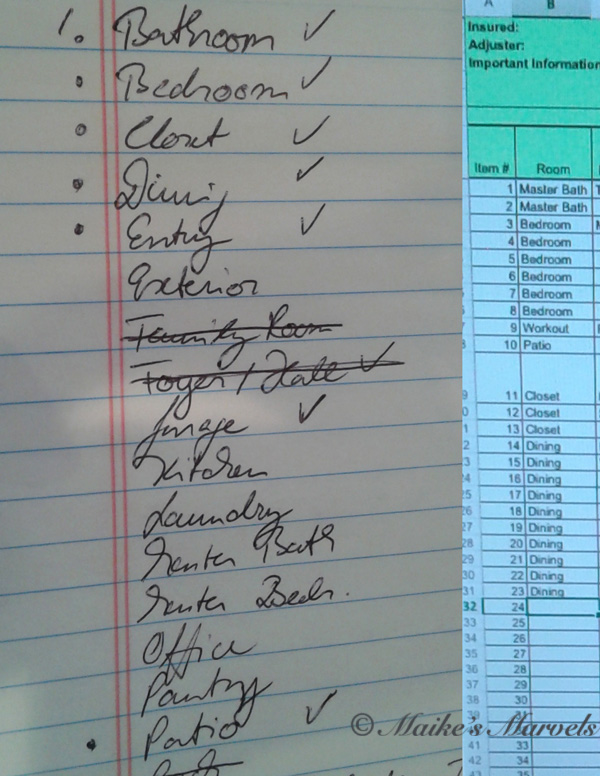 1. Bathroom ✓
Bedroom ✓
Closet ✓
Dining ✓
Entry ✓
Exterior
Family Room
Foyer / Hall ✓
Garage ✓
Kitchen
Laundry
Master Bath
Master Bedr.
Office
Pantry
Patio ✓
A B
Insured:
Adjuster:
Important Information
Item # Room
1 Master Bath T
2 Master Bath
3 Bedroom
4 Bedroom
5 Bedroom
6 Bedroom
7 Bedroom
8 Bedroom
9 Workout
10 Patio
11 Closet
12 Closet
13 Closet
14 Dining
15 Dining
16 Dining
17 Dining
18 Dining
27 19 Dining
28 20 Dining
29 21 Dining
30 22 Dining
31 23 Dining
32 24
33 25
34 26
35 27
36 28
37 29
38 30
39 31
41 33
42 34
© Maike's Marvels